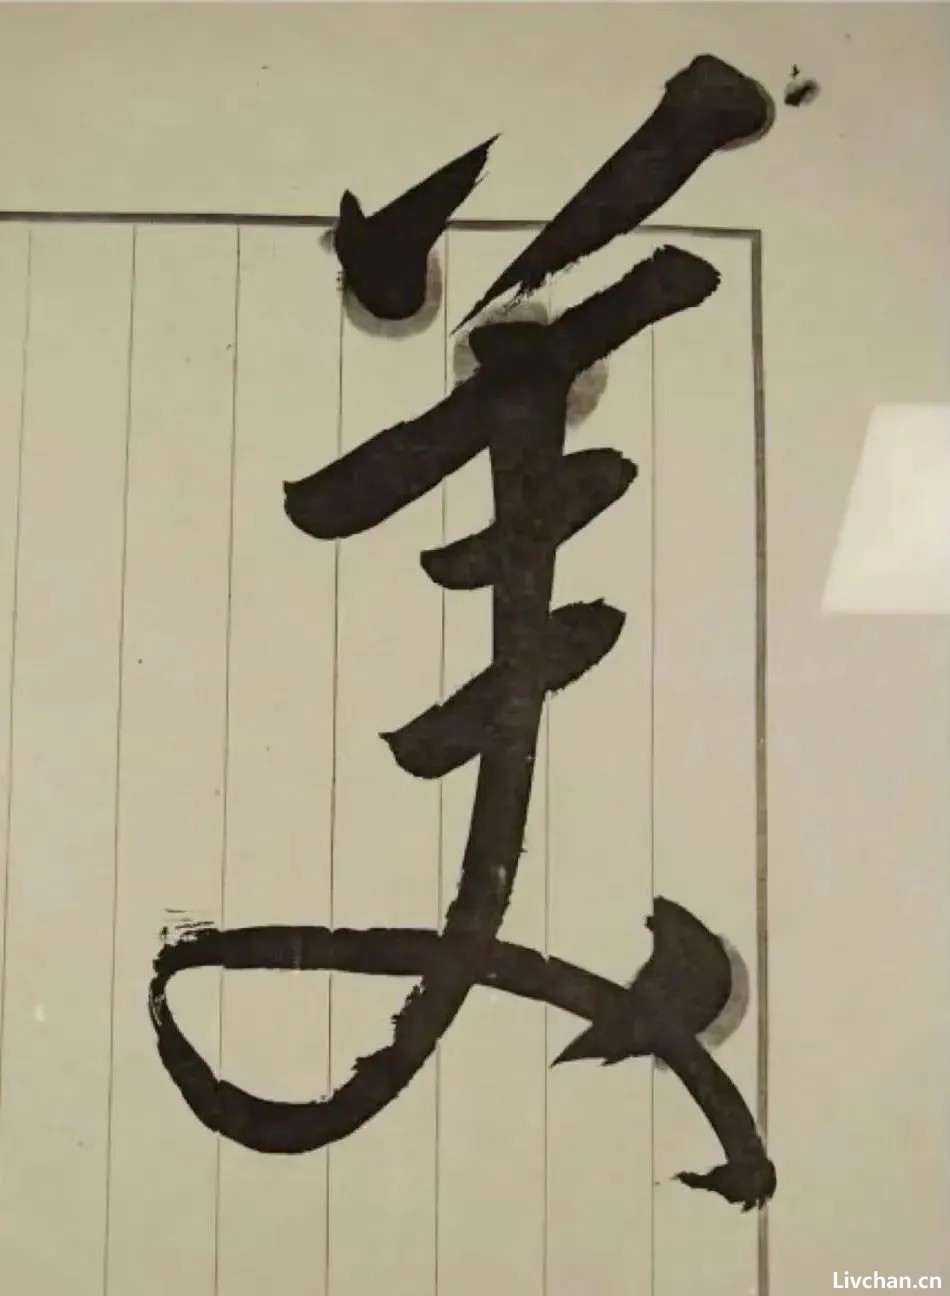 美
Livchan.cn